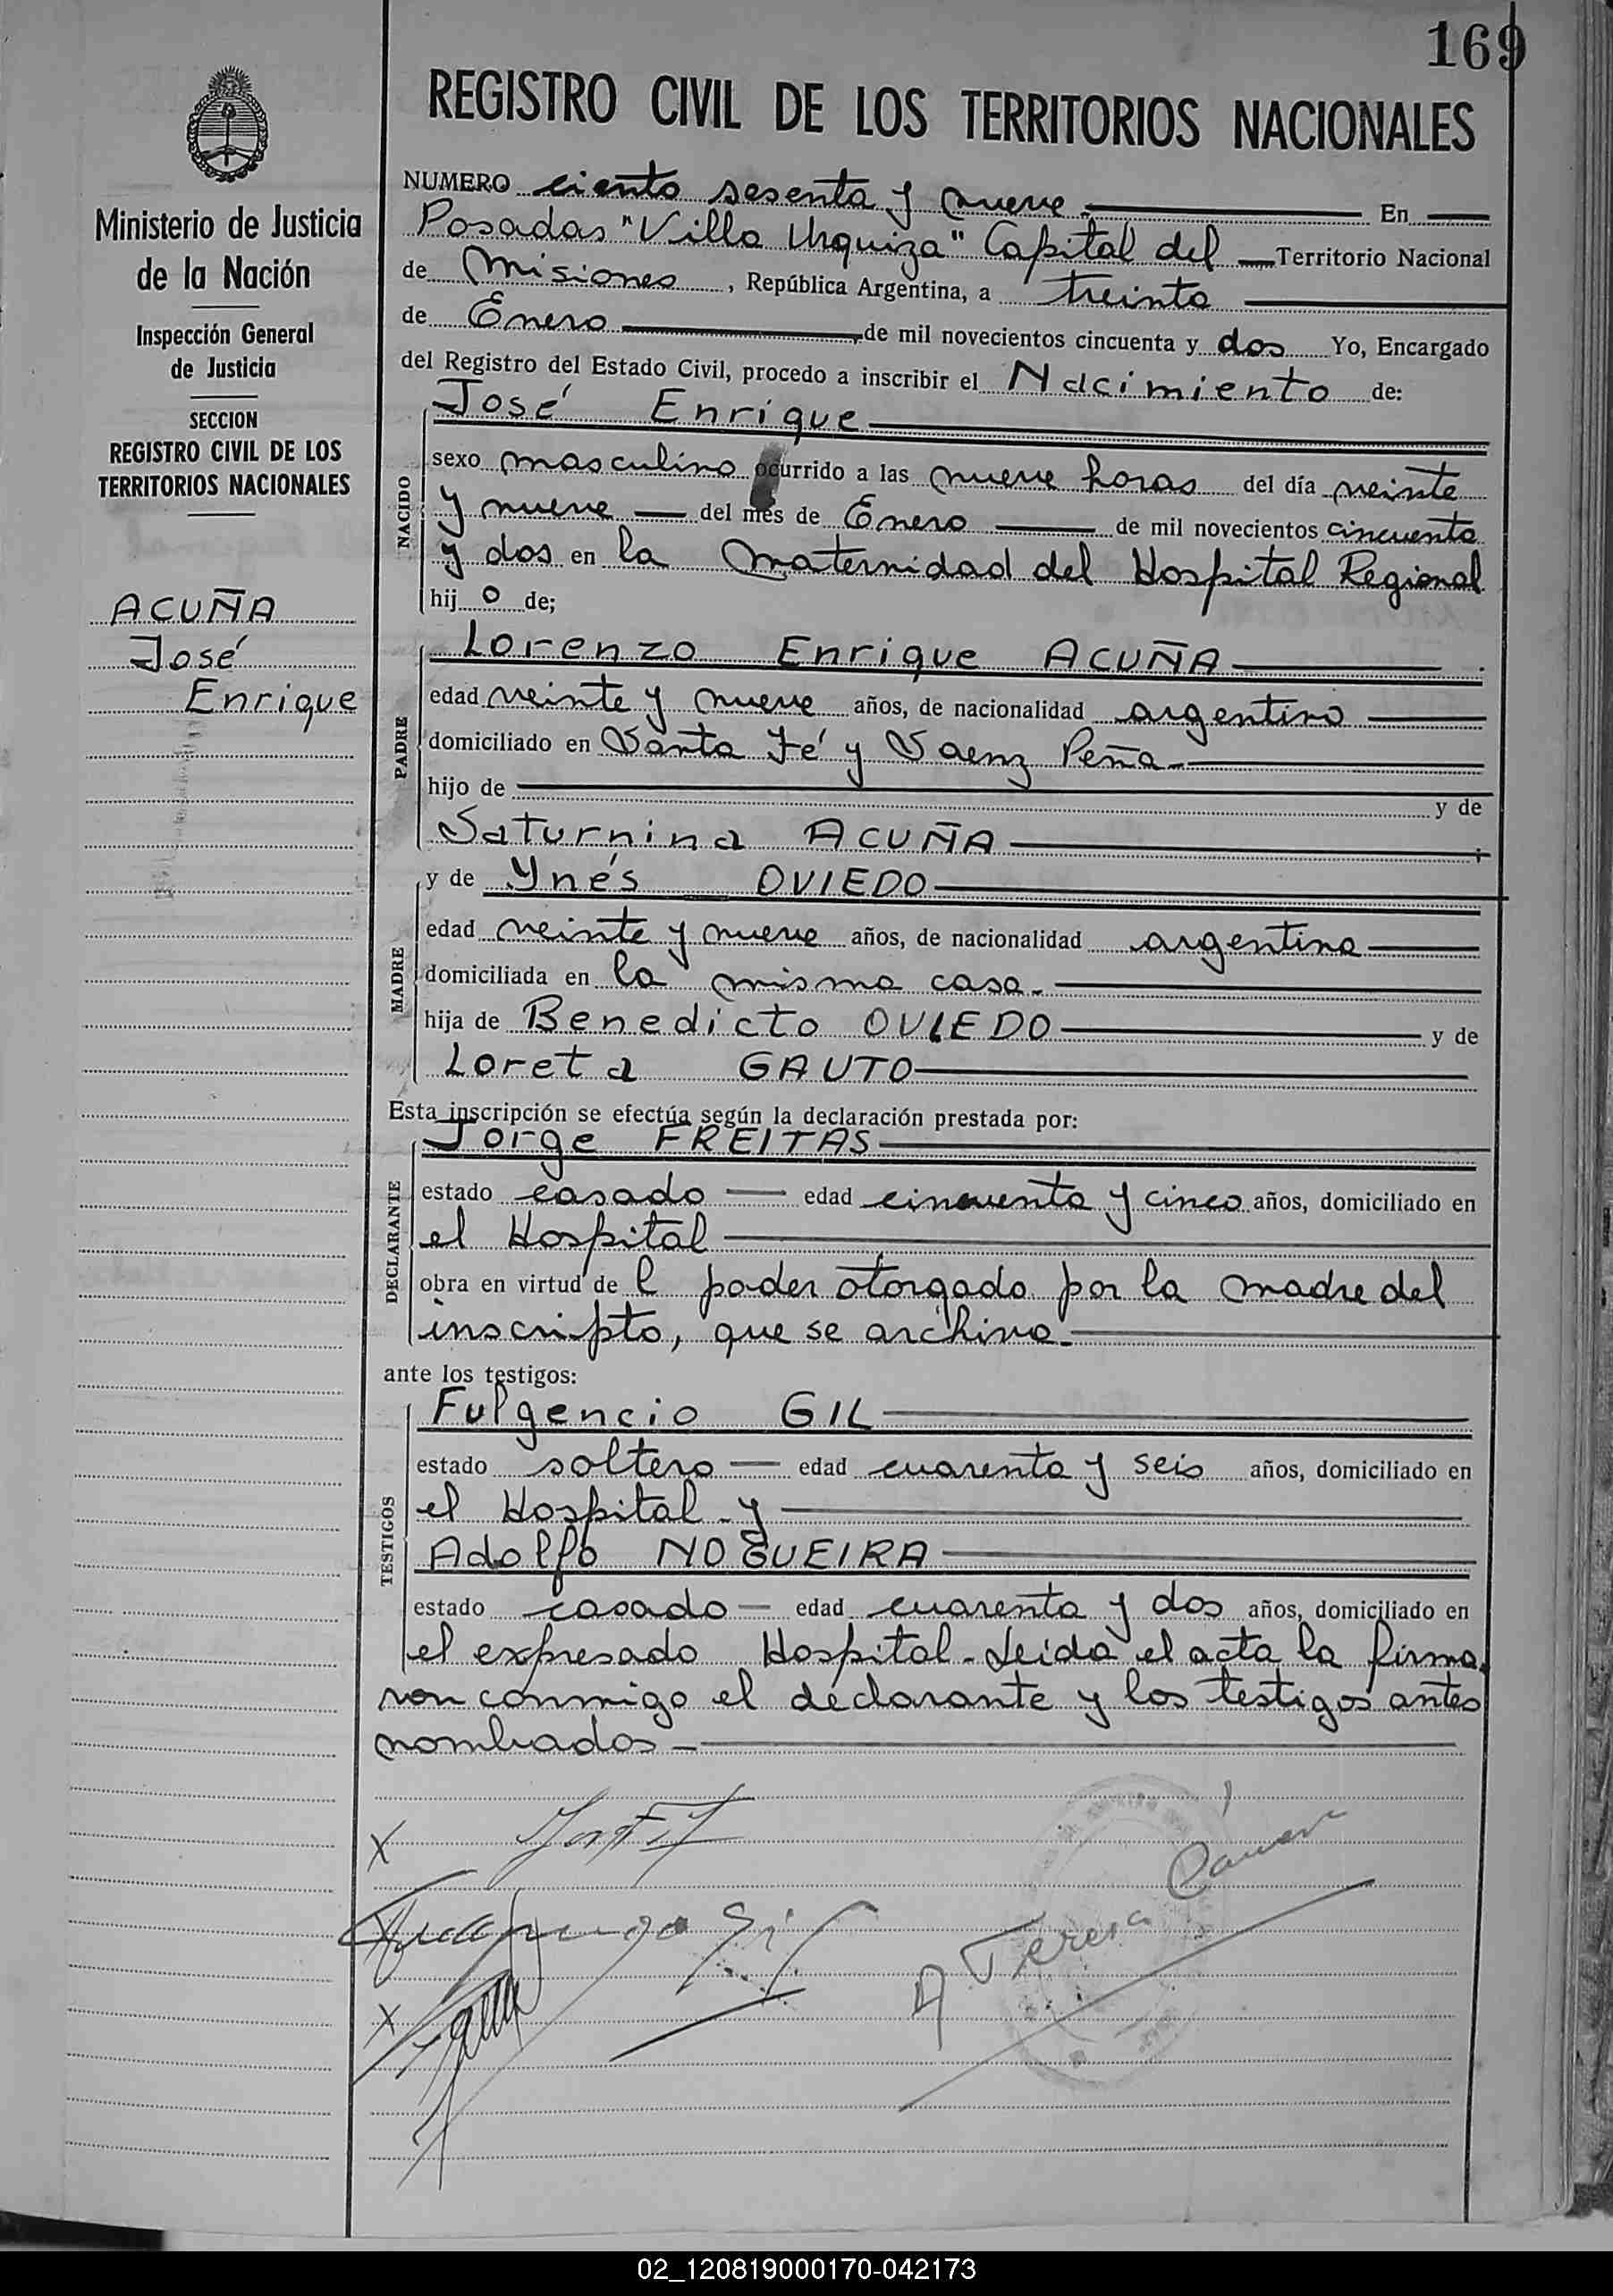 169
REGISTRO CIVIL DE LOS TERRITORIOS NACIONALES
Ministerio de Justicia
de la Nación
Inspección General
de Justicia
SECCION
REGISTRO CIVIL DE LOS
TERRITORIOS NACIONALES
ACUÑA
José
Enrique
NUMERO ciento sesenta y nueve. En
Posadas "Villa Urquiza" Capital del Territorio Nacional
de Misiones, República Argentina, a treinta
de Enero de mil novecientos cincuenta y dos Yo, Encargado
del Registro del Estado Civil, procedo a inscribir el Nacimiento de:
José Enrique
NACIDO
sexo masculino ocurrido a las nueve horas del día veinte
y nueve del mes de Enero de mil novecientos cincuenta
y dos en la Maternidad del Hospital Regional
hijo de;
PADRE
Lorenzo Enrique ACUÑA
edad veinte y nueve años, de nacionalidad argentino
domiciliado en Santa Fé y Saenz Peña
hijo de y de
Saturnina ACUÑA
MADRE
y de Ynés OVIEDO
edad veinte y nueve años, de nacionalidad argentina
domiciliada en la misma casa.
hija de Benedicto OVIEDO y de
Loreta GAUTO
Esta inscripción se efectúa según la declaración prestada por:
DECLARANTE
Jorge FREITAS
estado casado edad cincuenta y cinco años, domiciliado en
el Hospital
obra en virtud del poder otorgado por la madre del
inscripto, que se archiva.
ante los testigos:
TESTIGOS
Fulgencio GIL
estado soltero edad cuarenta y seis años, domiciliado en
el Hospital y
Adolfo NOGUEIRA
estado casado edad cuarenta y dos años, domiciliado en
el expresado Hospital. Leida el acta la firma
ron conmigo el declarante y los testigos antes
nombrados
X
X
A Teresa
02_120819000170-042173